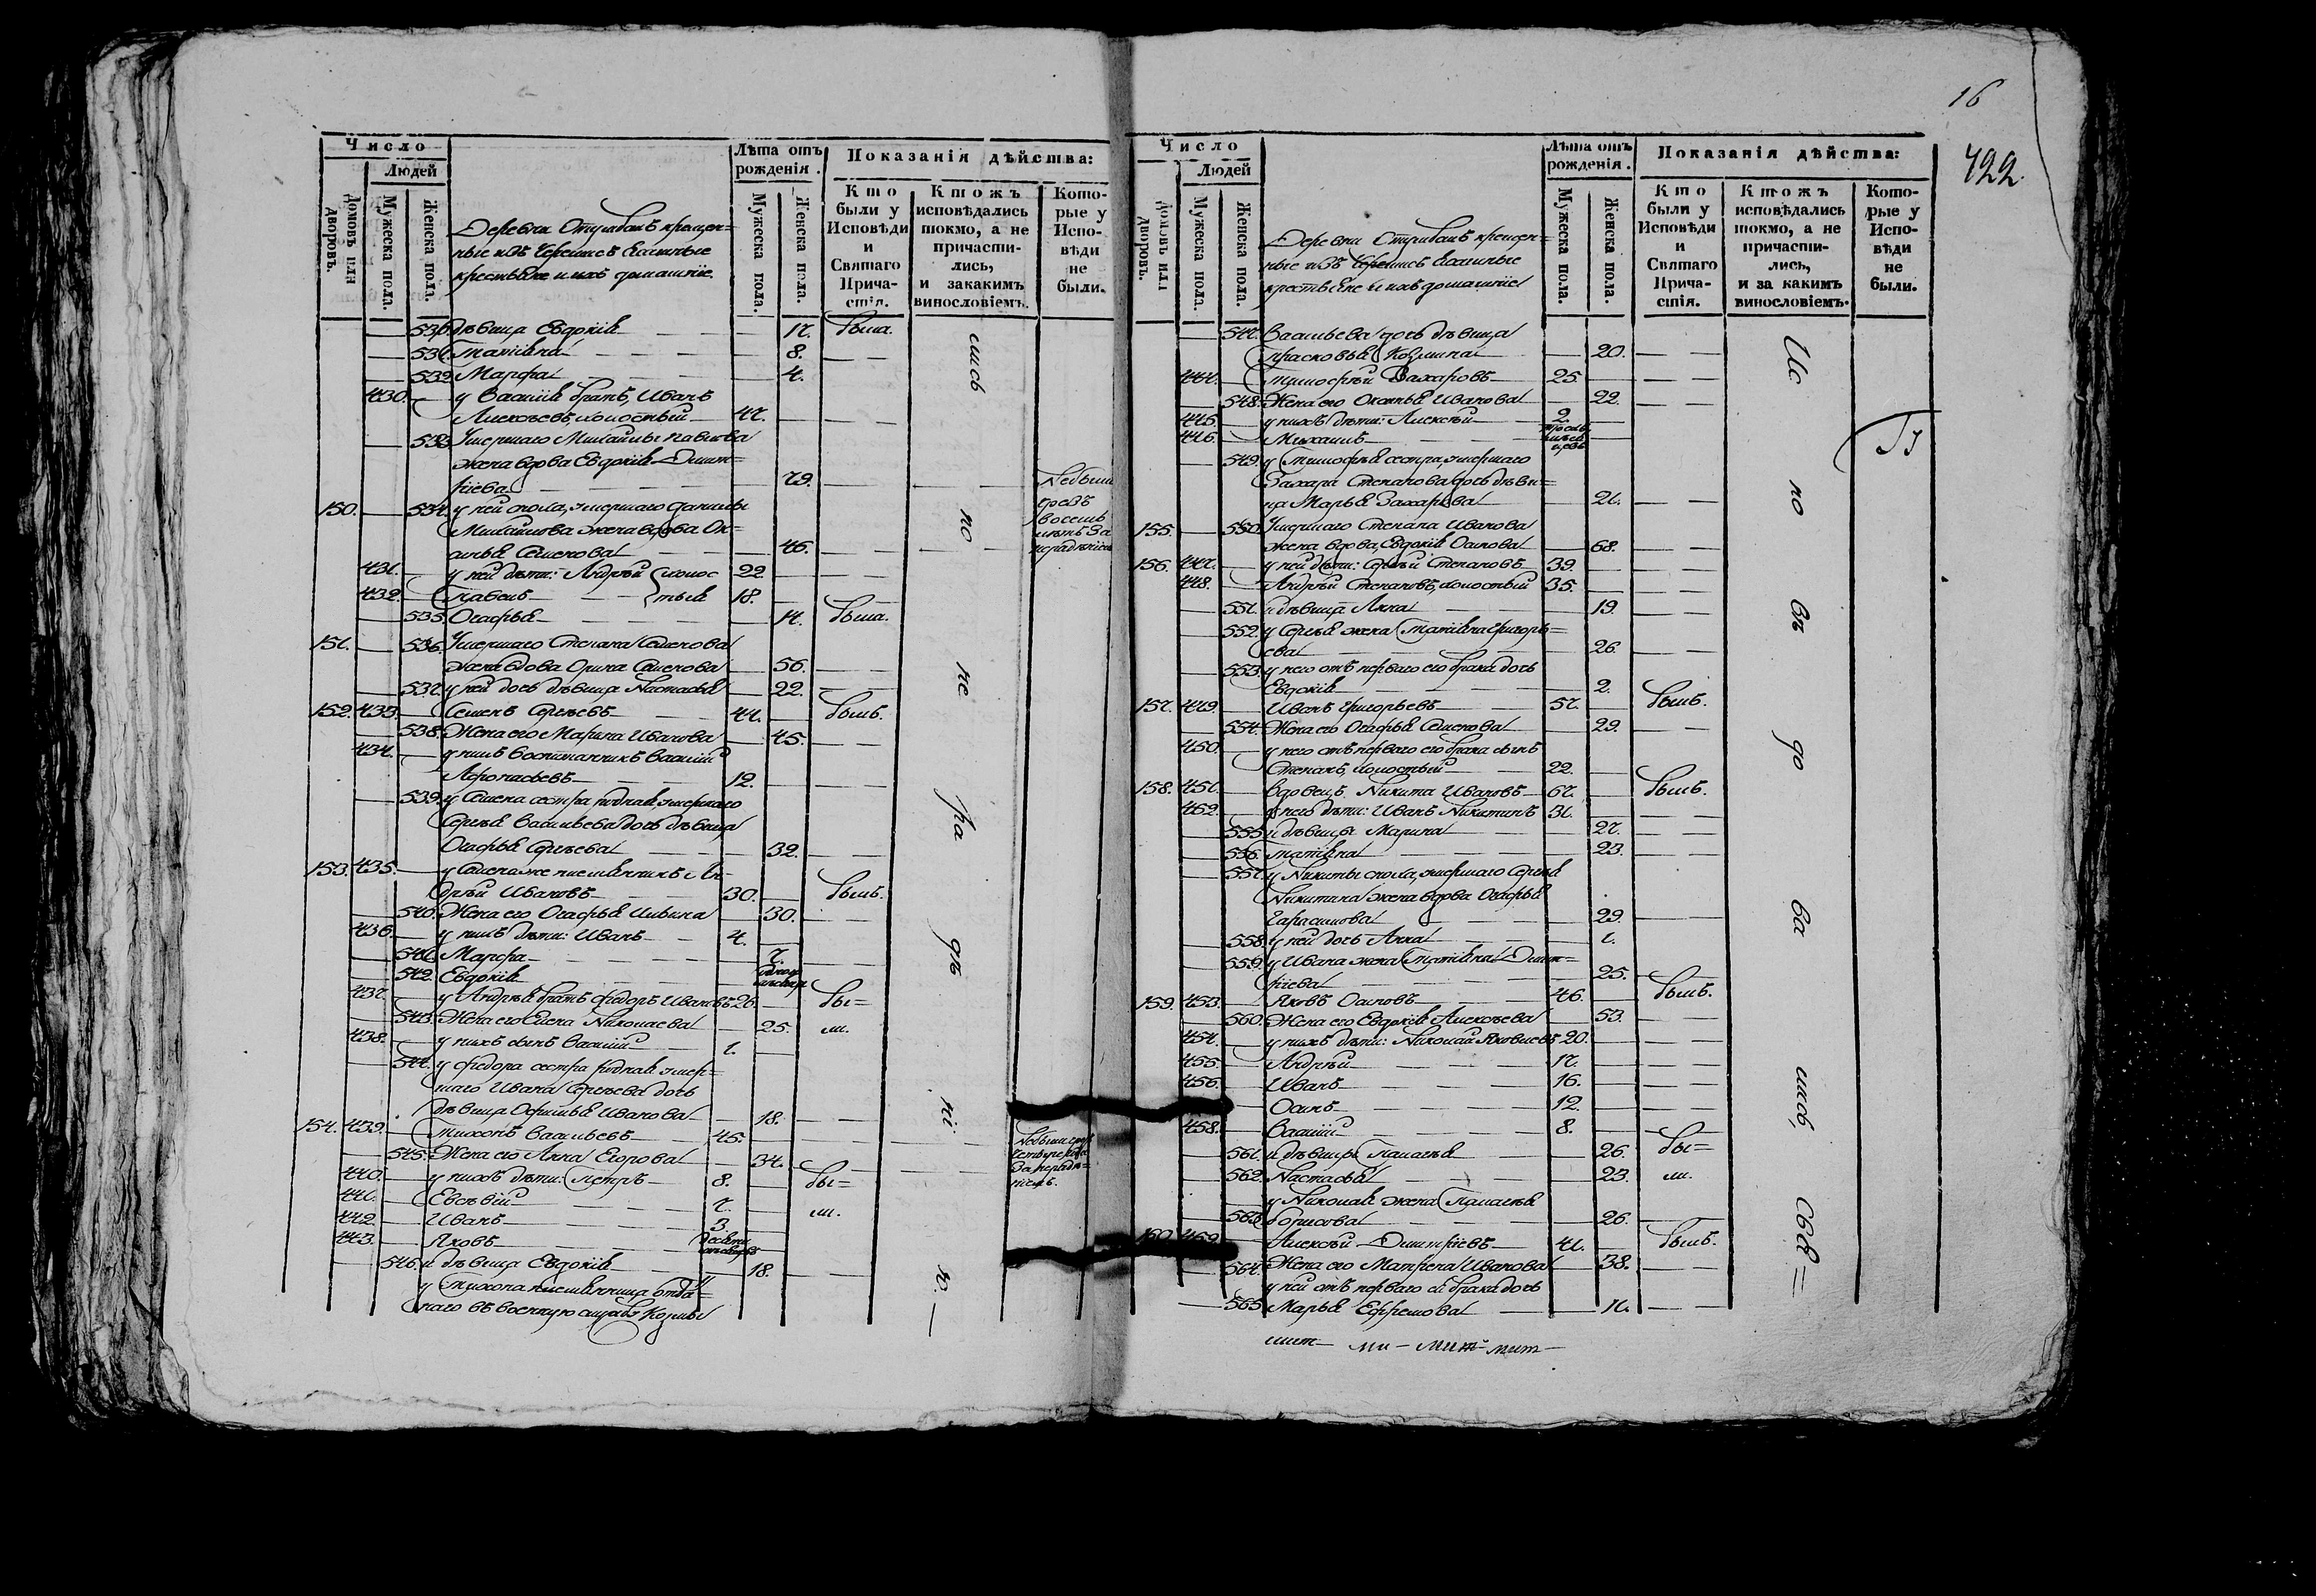 16
422.
Число
Людей
Домовъ или дворовъ.
Мужеска пола.
Женска пола.
Лѣта отъ рожденія.
Мужеска пола.
Женска пола.
Показанія дѣйства:
Кто были у Исповѣди и Святаго Причастія.
Ктожъ исповѣдались токмо, а не причастились, и закакимъ винословіемъ.
Которые у Исповѣди не были.
крещен=
ные изъ Черемисъ
крестьяне и ихъ домашніе.
530. дѣвица Евдокія — 17. была.
531. Матіяна — 8. — —
532. Марфа — 4.
430. у Василія братъ, Иванъ
Алексѣевъ, холостый — 47. — —
533. Умершаго Михайлы Павлова
жена вдова Евдокія Димит=
ріева — 79. — Небыли
150. 534. у ней сноха, умершаго Данилы чрезъ
Михайлова жена вдова Ок= восемь
синья Семенова — 46. — лѣтъ за нерадѣніем
431. у ней дѣти: Андрей холос 22
432. Павелъ — тыя 18.
535. Агафья — 14. была.
151. 536. Умершаго Степана Семенова
жена вдова Орина Семенова — 56. — —
537. у ней дочь дѣвица Настасья — 22. — —
152. 433. Семенъ Сергѣевъ — 44. былъ.
538. Жена его Марина Иванова — 45. — —
434. у нихъ воспитанникъ Василій
Афонасьевъ — 12. — —
539. у Семена сестра родная, умершаго
Сергѣя Васильева дочь дѣвица
Агафья Сергѣева — 32. — —
153. 435. у Семена же племянникъ Ан=
дрей Ивановъ — 30. былъ.
540. Жена его Агафья Ильина — 30. — —
436. у нихъ дѣти: Иванъ — 4. —
541. Марфа — 7. — —
542. Евдокія —
437. у Андрѣя братъ Федоръ Ивановъ 26. бы=
543. Жена его Елена Николаева — 25. ли.
438. у нихъ сынъ Василій — 1. —
544. у Федора сестра родная, умер=
шаго Ивана Сергѣева дочь
дѣвица Офимья Иванова — 18. — —
154. 439. Тихонъ Васильевъ — 45. — Небыли
545. Жена его Анна Егорова — 34. — за нерадѣ=
440. у нихъ дѣти: Петръ — 8. бы= ніемъ.
441. Евсѣвій — 7. ли.
442. Иванъ — 3. —
443. Яковъ —
546. и дѣвица Евдокія — 18. — —
у Тихона племянница отдан=
наго въ военную службу Козмы
лись по не ра дѣ ні ю. —
Число
Людей
Домовъ или дворовъ.
Мужеска пола.
Женска пола.
Лѣта отъ рожденія.
Мужеска пола.
Женска пола.
Показанія дѣйства:
Кто были у Исповѣди и Святаго Причастія.
Ктожъ исповѣдались токмо, а не причастились, и за какимъ винословіемъ.
Которые у Исповѣди не были.
крещен=
ные изъ Черемисъ
крестьяне и ихъ домашніе
547. Васильева дочь дѣвица
Прасковья Козмина — 20. — —
444. Тимофѣй Захаровъ — 25. — —
548. Жена его Оксинья Иванова — 22. — —
445. у нихъ дѣти: Алексѣй — 2.
446. Михаилъ —
549. у Тимофѣя сестра, умершаго
Захара Степанова дочь дѣви=
ца Марья Захарова — 21. — —
155. 550. Умершаго Степана Иванова
жена вдова, Евдокія Осипова — 68. — —
156. 447. у ней дѣти: Сергѣй Степановъ — 39. — —
448. Андрѣй Степановъ, холостый 35. — —
551. и дѣвица Анна — 19. — —
552. у Сергѣя жена Матіяна Григорь=
ева — 26. — —
553. у него отъ перваго его брака дочь
Евдокія — 2.
157. 449. Иванъ Григорьевъ — 57. былъ.
554. Жена его Агафья Семенова — 29. — —
450. у него отъ перваго его брака сынъ
Степанъ, холостый — 22. — —
158. 451. вдовецъ Никита Ивановъ — 67. былъ.
452. у него дѣти: Иванъ Никитинъ 31. — —
555. и дѣвицы Марина — 27. — —
556. Матіяна — 23. — —
557. у Никиты сноха, умершаго Сергѣя
Никитина жена вдова Агафья
Гарасимова — 29. — —
558. у ней дочь Анна — 1.
559. у Ивана жена Матіяна Димит=
ріева — 25. — —
159. 453. Яковъ Осиповъ — 46. былъ.
560. Жена его Евдокія Алексѣева — 53. — —
454. у нихъ дѣти: Николай Яковлевъ 20. — —
455. Андрѣй — 17. — —
456. Иванъ — 16. — —
Осипъ — 12. — —
458. Василій — 8. — —
561. и дѣвицы Палагѣя — 26. бы=
562. Настасья — 23. ли.
у Николая жена Палагѣя
563. Борисова — 26. — —
160. 459. Алексѣй Димитріевъ — 41. былъ.
564. Жена его Матрена Иванова — 38. — —
у ней отъ перваго ея брака дочь
565. Марья Ефремова — 11. — —
Ис по вѣ до ва лись, Свя=